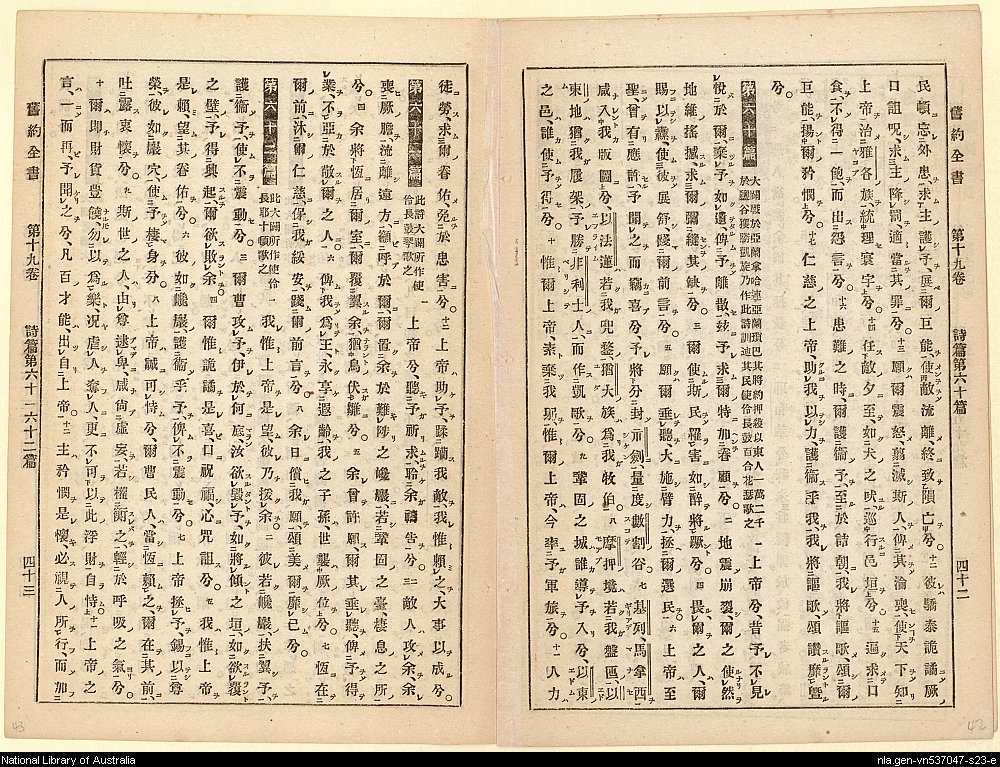 舊約全書　第十九卷　詩篇第六十篇　四十二
民頓忘、外患求主護予、展爾巨能、使敵流離、終致隕亡兮。十二彼驕泰詭譎厥
口詛呪、求主降罰適當其罪兮。十三願爾震怒、翦滅斯人、俾其淪喪、使天下知
上帝治雅各族、統理寰宇兮。十四任敵夕至、如犬之吠、巡行邑垣兮。十五遍求口
食、不得一飽、而出怨言兮。十六患難之時、爾護衞予、至於詰朝、我將謳歌、頌爾
巨能、揚爾矜憫兮。十七仁慈之上帝、助我以力、護衞乎我、我將謳歌、頌讚靡曁
兮。
第六十篇　大闢戰於亞蘭拿哈連亞蘭瑣巴其將約押殺以東人一萬二千
於鹽谷獲勝凱旋乃作此詩訓迪其民使伶長鼓百合花瑟歌之　一上帝兮、昔予不見
悅於爾、棄予如遺、俾予離散、茲予求爾特加眷顧兮。二地震崩裂、爾之使然
地維搖撼、求爾彌縫其缺兮。三爾使斯民罹害如醉將蹶兮。四畏爾之人、爾
賜以纛、使彼展舒、踐爾前言兮。五願爾垂聽、大施臂力、拯爾選民。六上帝至
聖、曾有應許、予聞之而竊喜兮、予將分封示劍、量度數割谷七基列、馬拿西
咸入我版圖兮、以法蓮若我兜鍪、猶大族爲我牧伯。八摩押境若我盤匜、以
東地猶我履架、予勝非利士人、而作凱歌兮。九鞏固之城、誰導予入兮、以東
之邑、誰使予得兮。十惟爾上帝、素棄我躬、惟爾上帝、今率予軍旅兮。十一人力
徒勞、求爾眷佑、免於患害兮。十二上帝助予、蹂躪我敵、我惟賴之、大事以成兮。
第六十一篇　此詩大闢所作使
伶長鼓琴歌之　一上帝兮、聽予祈求、聆余禱告兮。二敵人攻余、余
喪厥膽、流離遠方、籲呼於爾、爾置余於難陟之巉巖、若鞏固之臺、棲息之所
兮。四余將恆居爾室、爾覆翼余、猶鳥伏雛兮。五余曾許願、爾其垂聽、俾予得
業、不亞於敬爾之人。六俾我爲王、永享遐齡、我之子孫、世襲厥位兮。七恆在
爾前、沐爾仁慈、保我綏安、踐爾前言兮。八余日償我願、頌美爾靡已兮。
第六十二篇　此大闢所作使伶
長耶十頓歌之　一我惟上帝是望、彼乃援余。二彼若巉巖、扶翼予、
護衞予、使不震動兮。三爾曹攻予、伊於何底、汝欲毀予、如將傾之垣、如欲覆
之壁、予得興起、爾欲敗余。四爾惟詭譎是喜、口祝願、心咒詛兮。五我惟上帝
是賴、望其眷佑兮。六彼如巉巖、護衞乎予、俾不震動兮。七上帝拯予、錫以尊
榮、彼如巖穴、使予棲身兮。八上帝誠可恃兮、爾曹民人、當恆賴之、爾在其前、
吐露衷懷兮。九斯世之人、由尊逮卑、咸尙虛妄、若權衡之、輕於呼吸之氣兮。
十爾卽財貨豐饒、勿以爲樂、况虐人奪人、更不可以此浮財自恃。十一上帝之
言、一而再、予聞之兮、凡百才能、出自上帝。十二主矜憫是懷、必視人所行、而加
舊約全書　第十九卷　詩篇第六十一六十二篇　四十三
43
42
National Library of Australia
nla.gen-vn537047-s23-e